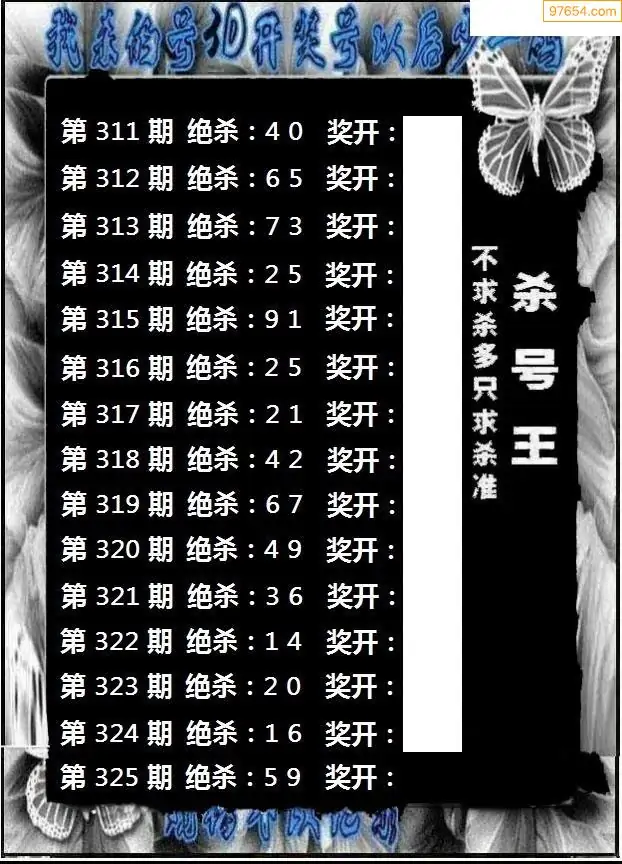 97654.com
我来的号3D开奖号以后少一码
第 311 期 绝杀：4 0 奖开：
第 312 期 绝杀：6 5 奖开：
第 313 期 绝杀：7 3 奖开：
第 314 期 绝杀：2 5 奖开：
第 315 期 绝杀：9 1 奖开：
第 316 期 绝杀：2 5 奖开：
第 317 期 绝杀：2 1 奖开：
第 318 期 绝杀：4 2 奖开：
第 319 期 绝杀：6 7 奖开：
第 320 期 绝杀：4 9 奖开：
第 321 期 绝杀：3 6 奖开：
第 322 期 绝杀：1 4 奖开：
第 323 期 绝杀：2 0 奖开：
第 324 期 绝杀：1 6 奖开：
第 325 期 绝杀：5 9 奖开：
杀号王
不求杀多只求杀准